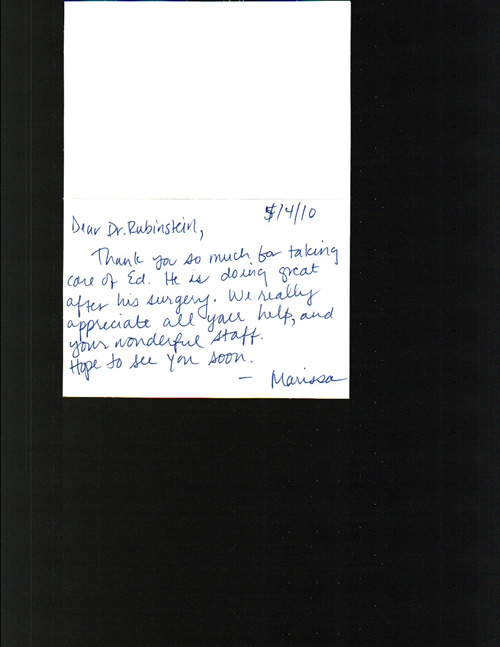 5/14/10
Dear Dr. Rubinstein,
Thank you so much for taking
care of Ed. He is doing great
after his surgery. We really
appreciate all your help, and
your wonderful staff.
Hope to see you soon.
— Marissa